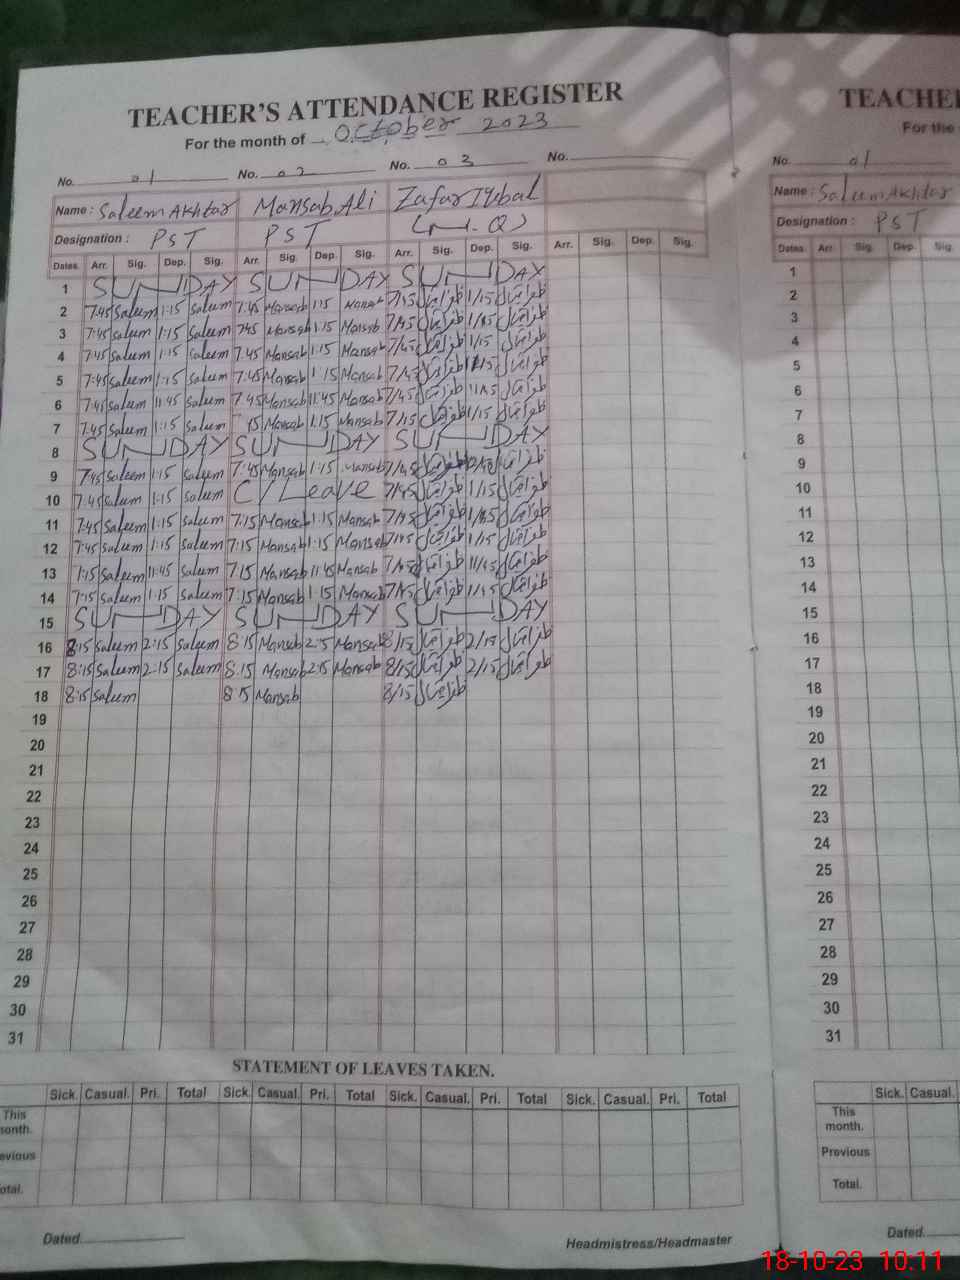 TEACHER'S ATTENDANCE REGISTER
For the month of October 2023
No. 01 No. 02 No. 03 No.
Name : Saleem Akhtar Mansab Ali Zafar Iqbal
Designation : PST PST (N.Q)
Dates. Arr. Sig. Dep. Sig. Arr. Sig. Dep. Sig. Arr. Sig. Dep. Sig. Arr. Sig. Dep. Sig.
1 SUNDAY SUNDAY SUNDAY
2 7:45 Saleem 1:15 Saleem 7:45 Mansab 1:15 Mansab ظفراقبال 1/15 ظفراقبال
3 7:45 Saleem 1:15 Saleem 7:45 Mansab 1:15 Mansab 7/45 ظفراقبال ظفراقبال
4 7:45 Saleem 1:15 Saleem 7:45 Mansab 1:15 Mansab 7/45 ظفراقبال 1/15 ظفراقبال
5 7:45 Saleem 1:15 Saleem 7:45 Mansab 1:15 Mansab 7/45 ظفراقبال ظفراقبال
6 7:45 Saleem 11:45 Saleem 7:45 Mansab 11:45 Mansab 7/45 ظفراقبال ظفراقبال
7 7:45 Saleem 1:15 Saleem 45 Mansab 1:15 Mansab ظفراقبال 1/15 ظفراقبال
8 SUNDAY SUNDAY SUNDAY
9 7:45 Saleem 1:15 Saleem 7:45 Mansab 1:15 Mansab 7/45 ظفراقبال ظفراقبال
10 7:45 Saleem 1:15 Saleem C/Leave 7/45 ظفراقبال 1/15 ظفراقبال
11 7:45 Saleem 1:15 Saleem 7:15 Mansab 1:15 Mansab 7/45 ظفراقبال ظفراقبال
12 7:45 Saleem 1:15 Saleem 7:15 Mansab 1:15 Mansab ظفراقبال 1/15 ظفراقبال
13 7:15 Saleem 11:45 Saleem 7:15 Mansab 11:45 Mansab ظفراقبال 11/45 ظفراقبال
14 7:15 Saleem 1:15 Saleem 7:15 Mansab 1:15 Mansab ظفراقبال ظفراقبال
15 SUNDAY SUNDAY SUNDAY
16 8:15 Saleem 2:15 Saleem 8:15 Mansab 2:15 Mansab 8/15 ظفراقبال 2/15 ظفراقبال
17 8:15 Saleem 2:15 Saleem 8:15 Mansab 2:15 Mansab 8/15 ظفراقبال 2/15 ظفراقبال
18 8:15 Saleem 8:15 Mansab 8/15 ظفراقبال
19
20
21
22
23
24
25
26
27
28
29
30
31
STATEMENT OF LEAVES TAKEN.
Sick. Casual. Pri. Total Sick. Casual. Pri. Total Sick. Casual. Pri. Total Sick. Casual. Pri. Total
This
month.
Previous
Total.
Dated. Headmistress/Headmaster
TEACHE
For the
No. 01
Name : Saleem Akhtar
Designation : PST
Dates. Arr. Sig. Dep. Sig.
1
2
3
4
5
6
7
8
9
10
11
12
13
14
15
16
17
18
19
20
21
22
23
24
25
26
27
28
29
30
31
Sick. Casual.
This
month.
Previous
Total.
Dated.
18-10-23 10:11